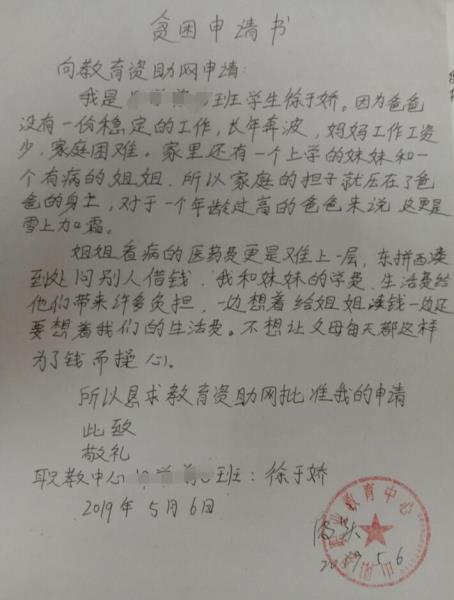 贫困申请书
向教育资助网申请:
我是班学生徐于娇。因为爸爸
没有一份稳定的工作,长年奔波,妈妈工作工资
少,家庭困难。家里还有一个上学的妹妹和一
个有病的姐姐,所以家庭的担子就压在了爸
爸的身上,对于一个年龄过高的爸爸来说这更是
雪上加霜。
姐姐看病的医药费更是难上一层,东拼西凑
到处问别人借钱,我和妹妹的学费、生活费给
他们带来许多负担,一边想着给姐姐凑钱一边还
要想着我们的生活费。不想让父母每天都这样
为了钱而操心。
所以恳求教育资助网批准我的申请
此致
敬礼
职教中心班:徐于娇
2019年5月6日
业教育中心
2019.5.6